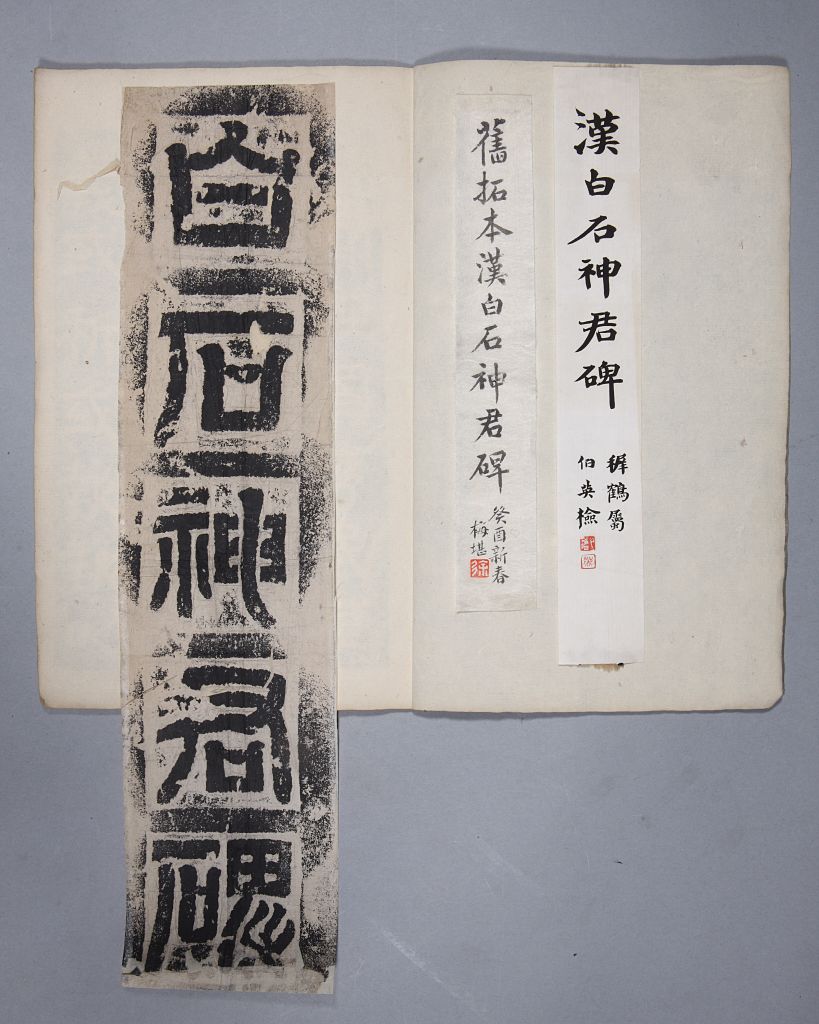 漢白石神君碑
穉鶴屬
伯英檢
舊拓本漢白石神君碑
癸酉新春
梅堪
白石神君碑